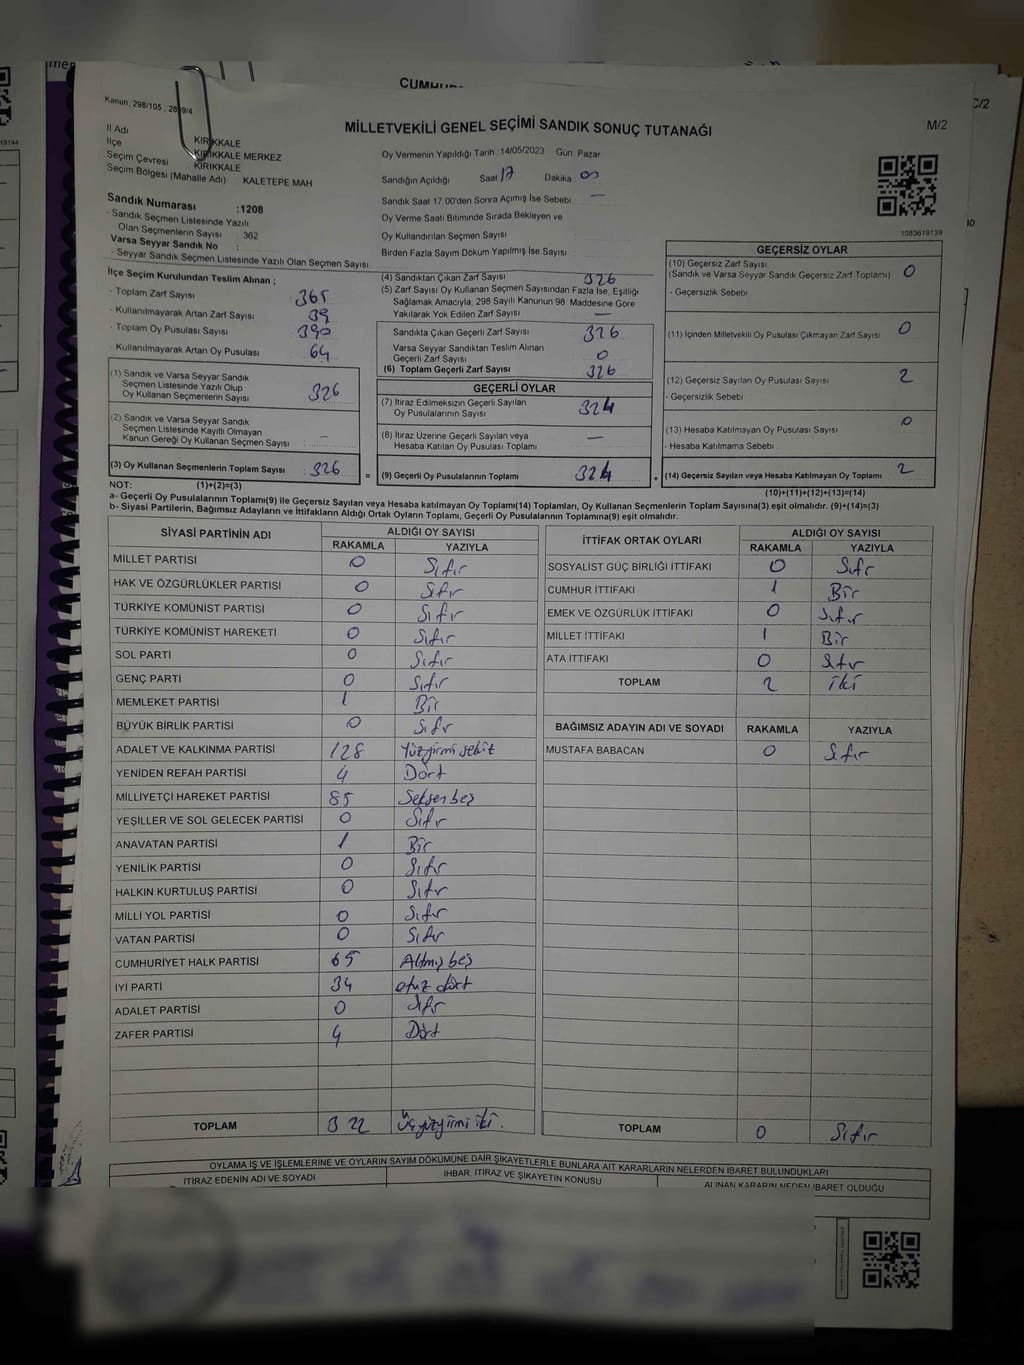 CUMHUR
C/2
Kanun, 298/105 , 2839/4
MİLLETVEKİLİ GENEL SEÇİMİ SANDIK SONUÇ TUTANAĞI
M/2
İl Adı KIRIKKALE
İlçe KIRIKKALE MERKEZ
Seçim Çevresi KIRIKKALE
Seçim Bölgesi (Mahalle Adı) KALETEPE MAH
Oy Vermenin Yapıldığı Tarih : 14/05/2023 Gün Pazar
Sandığın Açıldığı Saat 17 Dakika 00
Sandık Numarası :1208
- Sandık Seçmen Listesinde Yazılı
Olan Seçmenlerin Sayısı : 362
Varsa Seyyar Sandık No :
- Seyyar Sandık Seçmen Listesinde Yazılı Olan Seçmen Sayısı
Sandık Saat 17.00'den Sonra Açımış İse Sebebi —
Oy Verme Saati Bitiminde Sırada Bekleyen ve
Oy Kullandırılan Seçmen Sayısı
Birden Fazla Sayım Döküm Yapılmış İse Sayısı
1083619139
İlçe Seçim Kurulundan Teslim Alınan ;
- Toplam Zarf Sayısı 365
- Kullanılmayarak Artan Zarf Sayısı 39
- Toplam Oy Pusulası Sayısı 390
- Kullanılmayarak Artan Oy Pusulası 64
(1) Sandık ve Varsa Seyyar Sandık
Seçmen Listesinde Yazılı Olup
Oy Kullanan Seçmenlerin Sayısı 326
(2) Sandık ve Varsa Seyyar Sandık
Seçmen Listesinde Kayıtlı Olmayan
Kanun Gereği Oy Kullanan Seçmen Sayısı : —
(3) Oy Kullanan Seçmenlerin Toplam Sayısı : 326
(4) Sandıktan Çıkan Zarf Sayısı 326
(5) Zarf Sayısı Oy Kullanan Seçmen Sayısından Fazla İse, Eşitliği
Sağlamak Amacıyla; 298 Sayılı Kanunun 98. Maddesine Göre
Yakılarak Yok Edilen Zarf Sayısı —
Sandıkta Çıkan Geçerli Zarf Sayısı 326
Varsa Seyyar Sandıktan Teslim Alınan
Geçerli Zarf Sayısı 0
(6) Toplam Geçerli Zarf Sayısı 326
GEÇERLİ OYLAR
(7) İtiraz Edilmeksizin Geçerli Sayılan
Oy Pusulalarının Sayısı 324
(8) İtiraz Üzerine Geçerli Sayılan veya
Hesaba Katılan Oy Pusulası Toplamı —
= (9) Geçerli Oy Pusulalarının Toplamı 324
GEÇERSİZ OYLAR
(10) Geçersiz Zarf Sayısı 0
(Sandık ve Varsa Seyyar Sandık Geçersiz Zarf Toplamı)
- Geçersizlik Sebebi
(11) İçinden Milletvekili Oy Pusulası Çıkmayan Zarf Sayısı 0
(12) Geçersiz Sayılan Oy Pusulası Sayısı 2
- Geçersizlik Sebebi
(13) Hesaba Katılmayan Oy Pusulası Sayısı 0
- Hesaba Katılmama Sebebi
+ (14) Geçersiz Sayılan veya Hesaba Katılmayan Oy Toplamı 2
NOT: (1)+(2)=(3)
(10)+(11)+(12)+(13)=(14)
a- Geçerli Oy Pusulalarının Toplamı(9) ile Geçersiz Sayılan veya Hesaba katılmayan Oy Toplamı(14) Toplamları, Oy Kullanan Seçmenlerin Toplam Sayısına(3) eşit olmalıdır. (9)+(14)=(3)
b- Siyasi Partilerin, Bağımsız Adayların ve İttifakların Aldığı Ortak Oyların Toplamı, Geçerli Oy Pusulalarının Toplamına(9) eşit olmalıdır.
SİYASİ PARTİNİN ADI ALDIĞI OY SAYISI
RAKAMLA YAZIYLA
MİLLET PARTİSİ 0 Sıfır
HAK VE ÖZGÜRLÜKLER PARTİSİ 0 Sıfır
TÜRKİYE KOMÜNİST PARTİSİ 0 Sıfır
TÜRKİYE KOMÜNİST HAREKETİ 0 Sıfır
SOL PARTİ 0 Sıfır
GENÇ PARTİ 0 Sıfır
MEMLEKET PARTİSİ 1 Bir
BÜYÜK BİRLİK PARTİSİ 0 Sıfır
ADALET VE KALKINMA PARTİSİ 128 Yüzyirmi sekiz
YENİDEN REFAH PARTİSİ 4 Dört
MİLLİYETÇİ HAREKET PARTİSİ 85 Seksen beş
YEŞİLLER VE SOL GELECEK PARTİSİ 0 Sıfır
ANAVATAN PARTİSİ 1 Bir
YENİLİK PARTİSİ 0 Sıfır
HALKIN KURTULUŞ PARTİSİ 0 Sıfır
MİLLİ YOL PARTİSİ 0 Sıfır
VATAN PARTİSİ 0 Sıfır
CUMHURİYET HALK PARTİSİ 65 Altmış beş
İYİ PARTİ 34 otuz dört
ADALET PARTİSİ 0 Sıfır
ZAFER PARTİSİ 4 Dört
TOPLAM 322 Üçyüzyirmi iki.
İTTİFAK ORTAK OYLARI ALDIĞI OY SAYISI
RAKAMLA YAZIYLA
SOSYALİST GÜÇ BİRLİĞİ İTTİFAKI 0 Sıfır
CUMHUR İTTİFAKI 1 Bir
EMEK VE ÖZGÜRLÜK İTTİFAKI 0 Sıfır
MİLLET İTTİFAKI 1 Bir
ATA İTTİFAKI 0 Sıfır
TOPLAM 2 iki
BAĞIMSIZ ADAYIN ADI VE SOYADI RAKAMLA YAZIYLA
MUSTAFA BABACAN 0 Sıfır
TOPLAM 0 Sıfır
OYLAMA İŞ VE İŞLEMLERİNE VE OYLARIN SAYIM DÖKÜMÜNE DAİR ŞİKAYETLERLE BUNLARA AİT KARARLARIN NELERDEN İBARET BULUNDUKLARI
İTİRAZ EDENİN ADI VE SOYADI İHBAR, İTİRAZ VE ŞİKAYETİN KONUSU ALINAN KARARIN NEDEN İBARET OLDUĞU